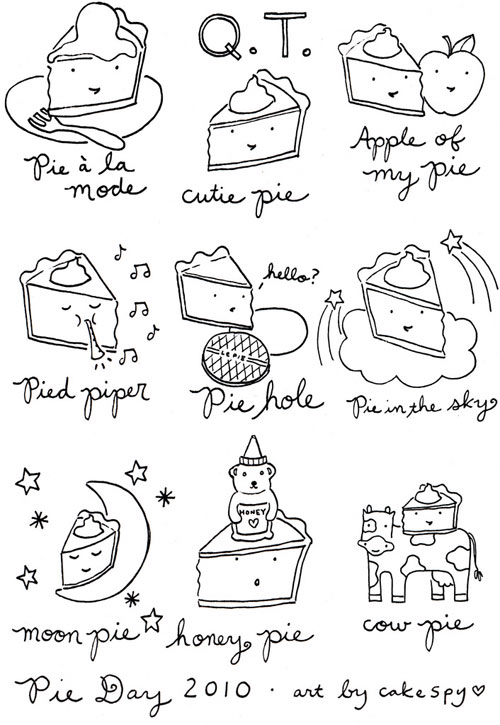 Q.T.
Pie à la
mode
cutie pie
Apple of
my pie
Pied piper
hello?
Pie hole
Pie in the sky
HONEY
moon pie
honey pie
cow pie
Pie Day 2010 · art by cakespy♡